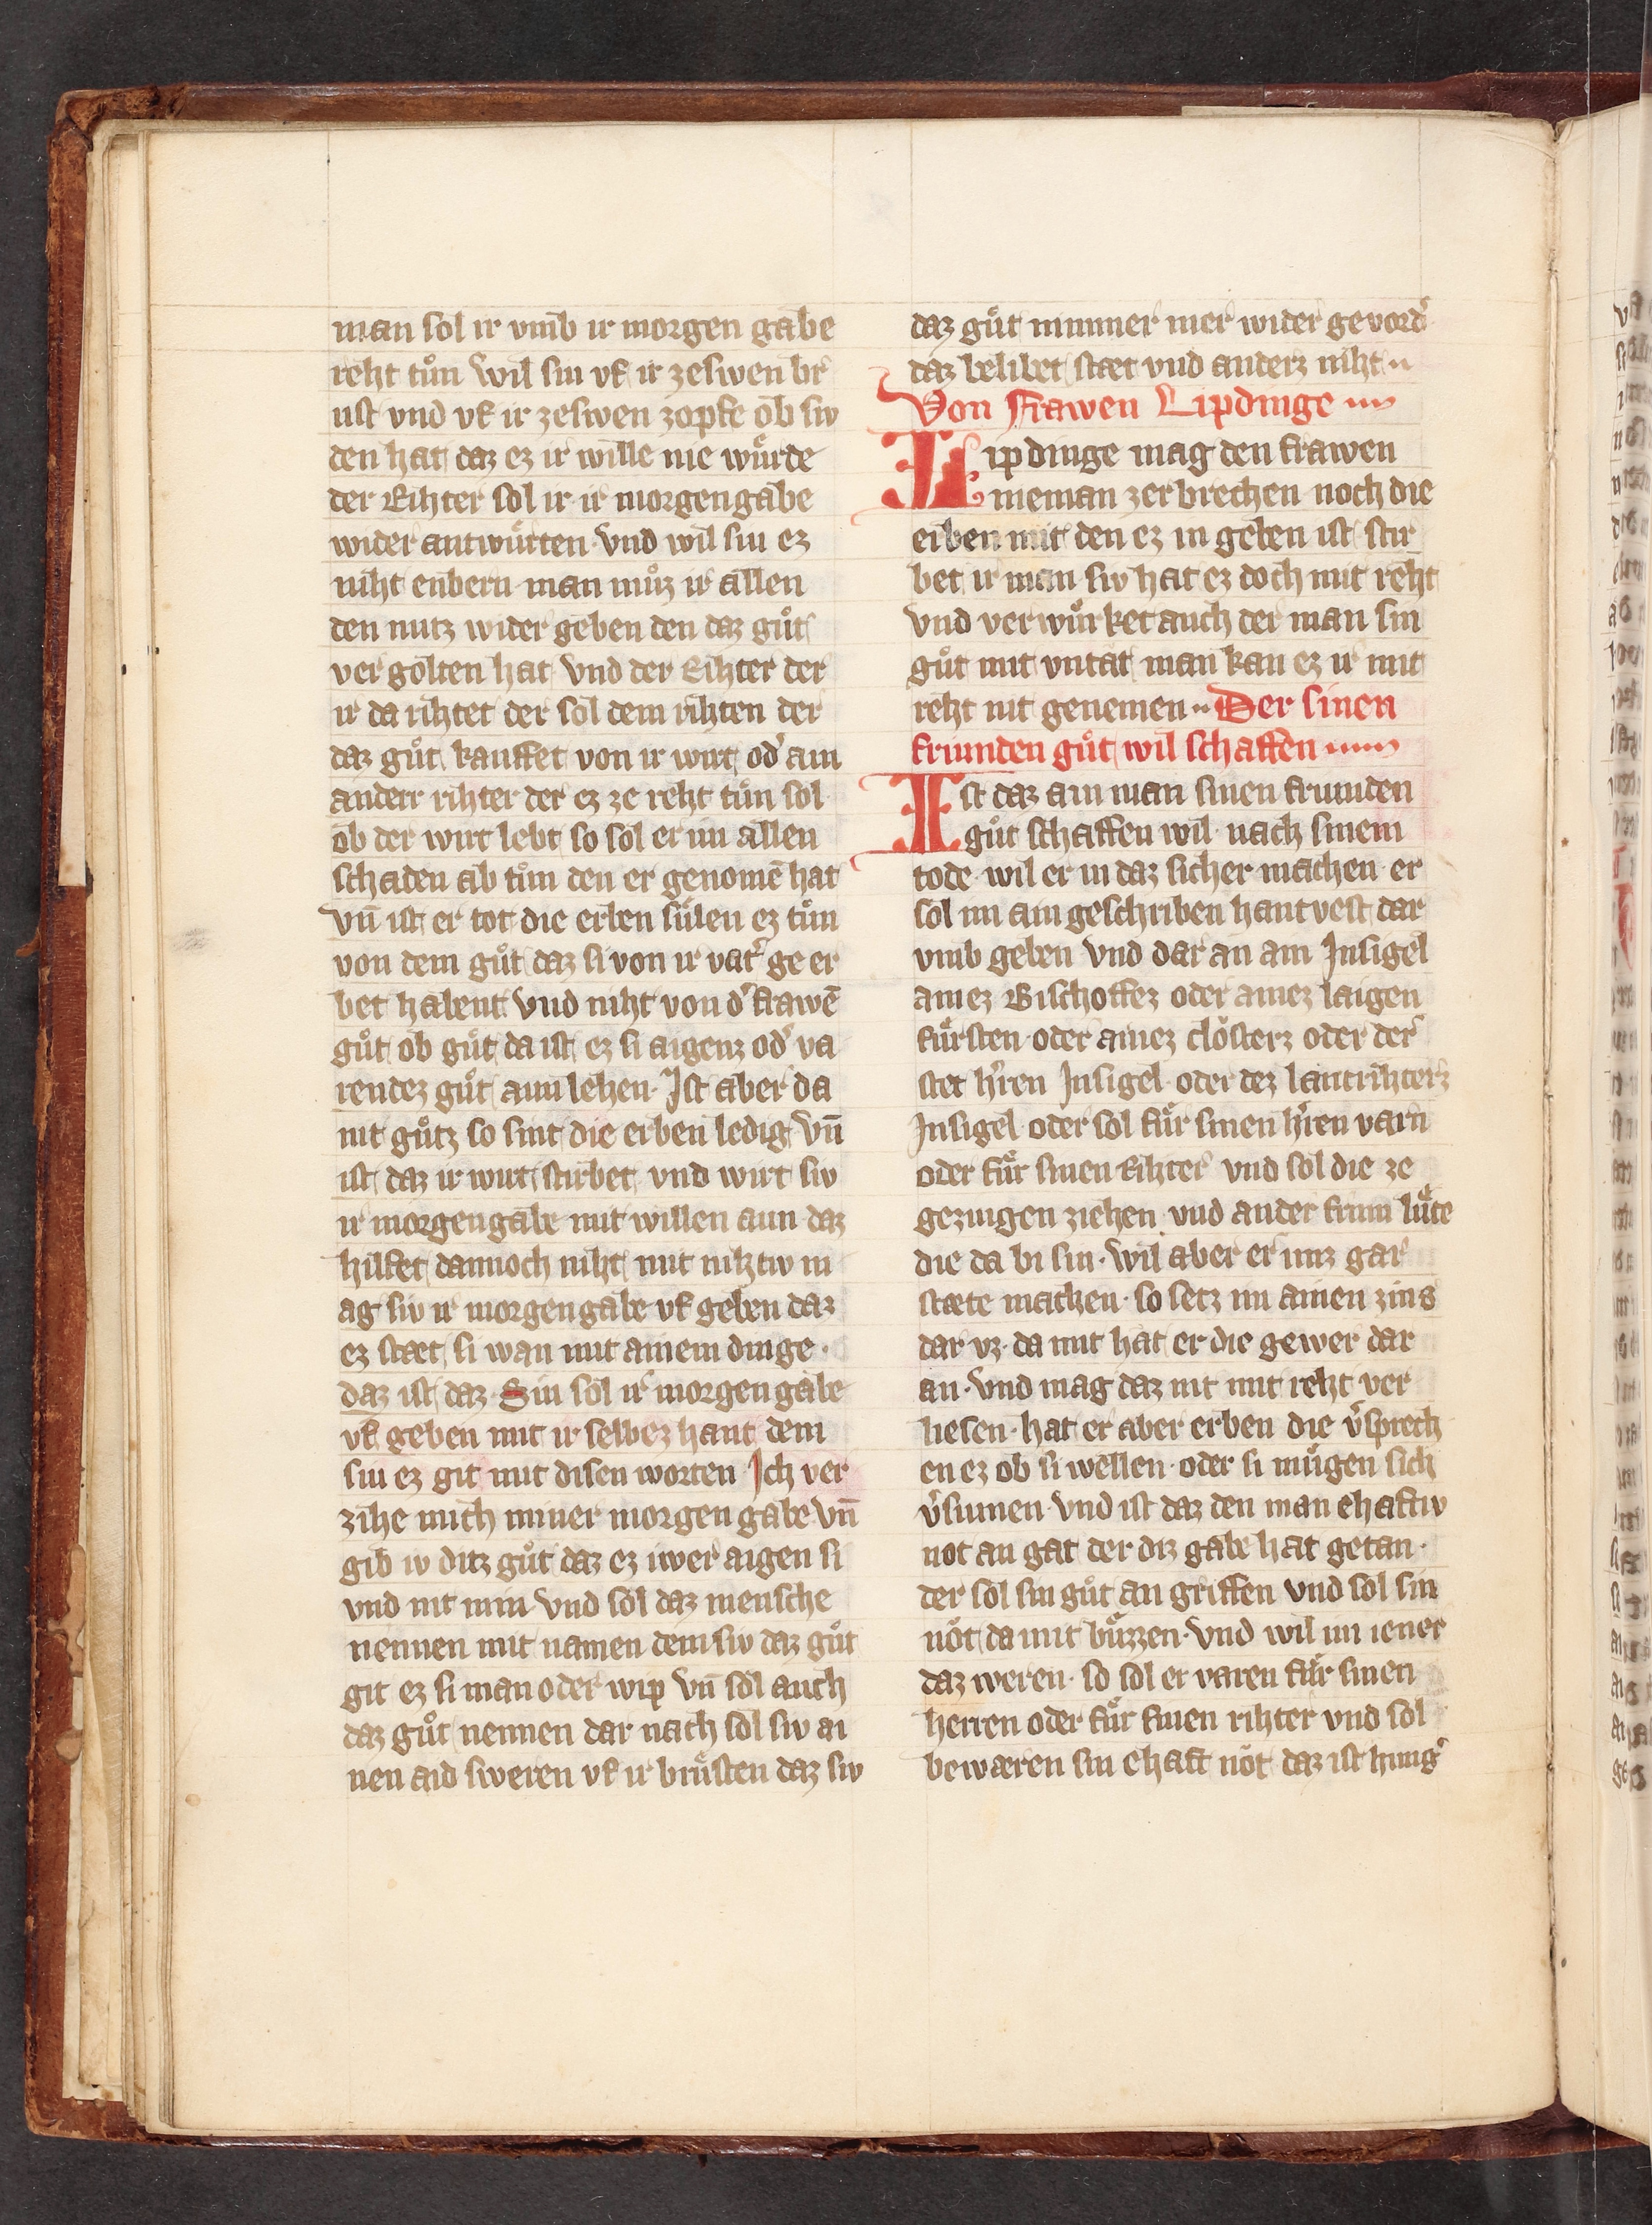 man sol ir vmb ir morgen gabe
reht tuͦn wil siu vf ir zeswen br
ust vnd vf ir zeswen zopfe ob siv
den hat daz ez ir wille nie wuͤrde
der Rihter sol ir ir morgengabe
wider antwuͤrten vnd wil siu ez
niht enbern man muͦz ir allen
den nutz wider geben den daz guͦt
vergolten hat vnd der Rihter der
ir da rihtet der sol dem rihten der
daz guͦt kauffet von ir wirt od' ain
anderr rihter der ez ze reht tuͦn sol
ob der wirt lebt so sol er im allen
schaden ab tuͦm den er genomē hat
vn̄ ist er tot die erben suͤlen ez tuͦn
von dem guͦt daz si von ir vat' ge er
bet habent vnd niht von d' frawē
guͦt ob guͦt da ist ez si aigenz od' va
rendez guͦt ann lehen. Ist aber da
nit guͦtz so sint die erben ledig vn̄
ist daz ir wirt stirbet vnd wirt siv
ir morgengabe mit willen ann daz
hilfet dannoch niht mit nihtiv m
ag siv ir morgengabe vf geben daz
ez stæt si wan mit ainem dinge.
daz ist daz Siu sol ir morgengabe
vf geben mit ir selbez hant dem
siu ez git mit disen worten Ich ver
zihe mich miner morgen gabe vn̄
gib iv ditz guͦt daz ez iwer aigen si
vnd nit min vnd sol daz mensche
nennen mit namen dem siv daz guͦt
git ez si man oder wip vn̄ sol auch
daz guͦt nennen dar nach sol siv ai
nen aid sweren vf ir bruͤsten daz siv
daz guͦt nimmer mer wider gevord'
daz belibet stæt vnd anderz niht
Von Frawen Lipdinge
Lipdinge mag den frawen
nieman zerbrechen noch die
erben mit den ez in geben ist stir
bet ir man siv hat ez doch mit reht
vnd verwuͤrket auch der man sin
guͦt mit vntat man kan ez ir mit
reht nit genemen Der sinen
friunden guͦt wil schaffen
Ist daz ain man sinen friunden
guͦt schaffen wil nach sinem
tode wil er in daz sicher machen er
sol im ain geschriben hantvest dar
vmb geben vnd dar an ain Insigel
ainez Bischoffez oder ainez laigen
fuͤrsten oder ainez closterz oder der
stet h'ren Insigel oder dez lantrihterz
Insigel oder sol fuͤr sinen h'ren varn
oder fuͤr sinen Rihter vnd sol die ze
gezingen ziehen vnd ander frum luͤte
die da bi sin. wil aber er imz gar
stæte machen. so setz im ainen zins
dar vz. da mit hat er die gewer dar
an. vnd mag daz nit mit reht ver
liesen. hat er aber erben die v'sprech
en ez ob si wellen. oder si muͤgen sich
v'siumen vnd ist daz den man ehaftiv
not an gat der diz gabe hat getan.
der sol sin guͦt an griffen vnd sol sin
not da mit buͤzzen. vnd wil im iener
daz weren. so sol er varen fuͤr sinen
herren oder fuͤr sinen rihter vnd sol
bewæren sin ehaft not daz ist hung'